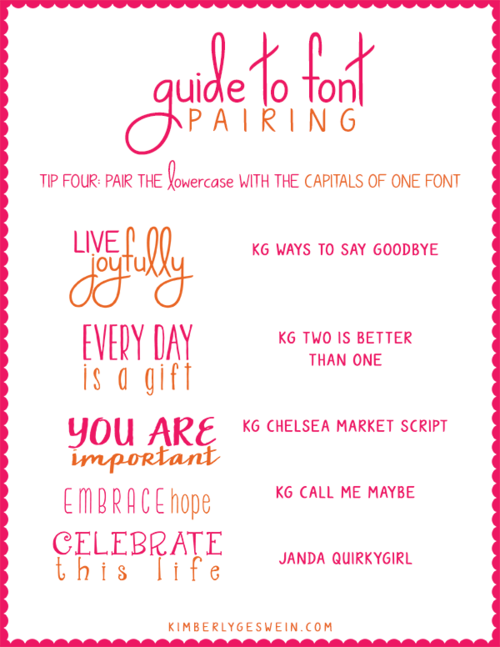 guide to font
PAIRING
TIP FOUR: PAIR THE lowercase WITH THE CAPITALS OF ONE FONT
LIVE
joyfully
KG WAYS TO SAY GOODBYE
EVERY DAY
is a gift
KG TWO IS BETTER
THAN ONE
YOU ARE
important
KG CHELSEA MARKET SCRIPT
EMBRACE hope
KG CALL ME MAYBE
CELEBRATE
this life
JANDA QUIRKYGIRL
KIMBERLYGESWEIN.COM